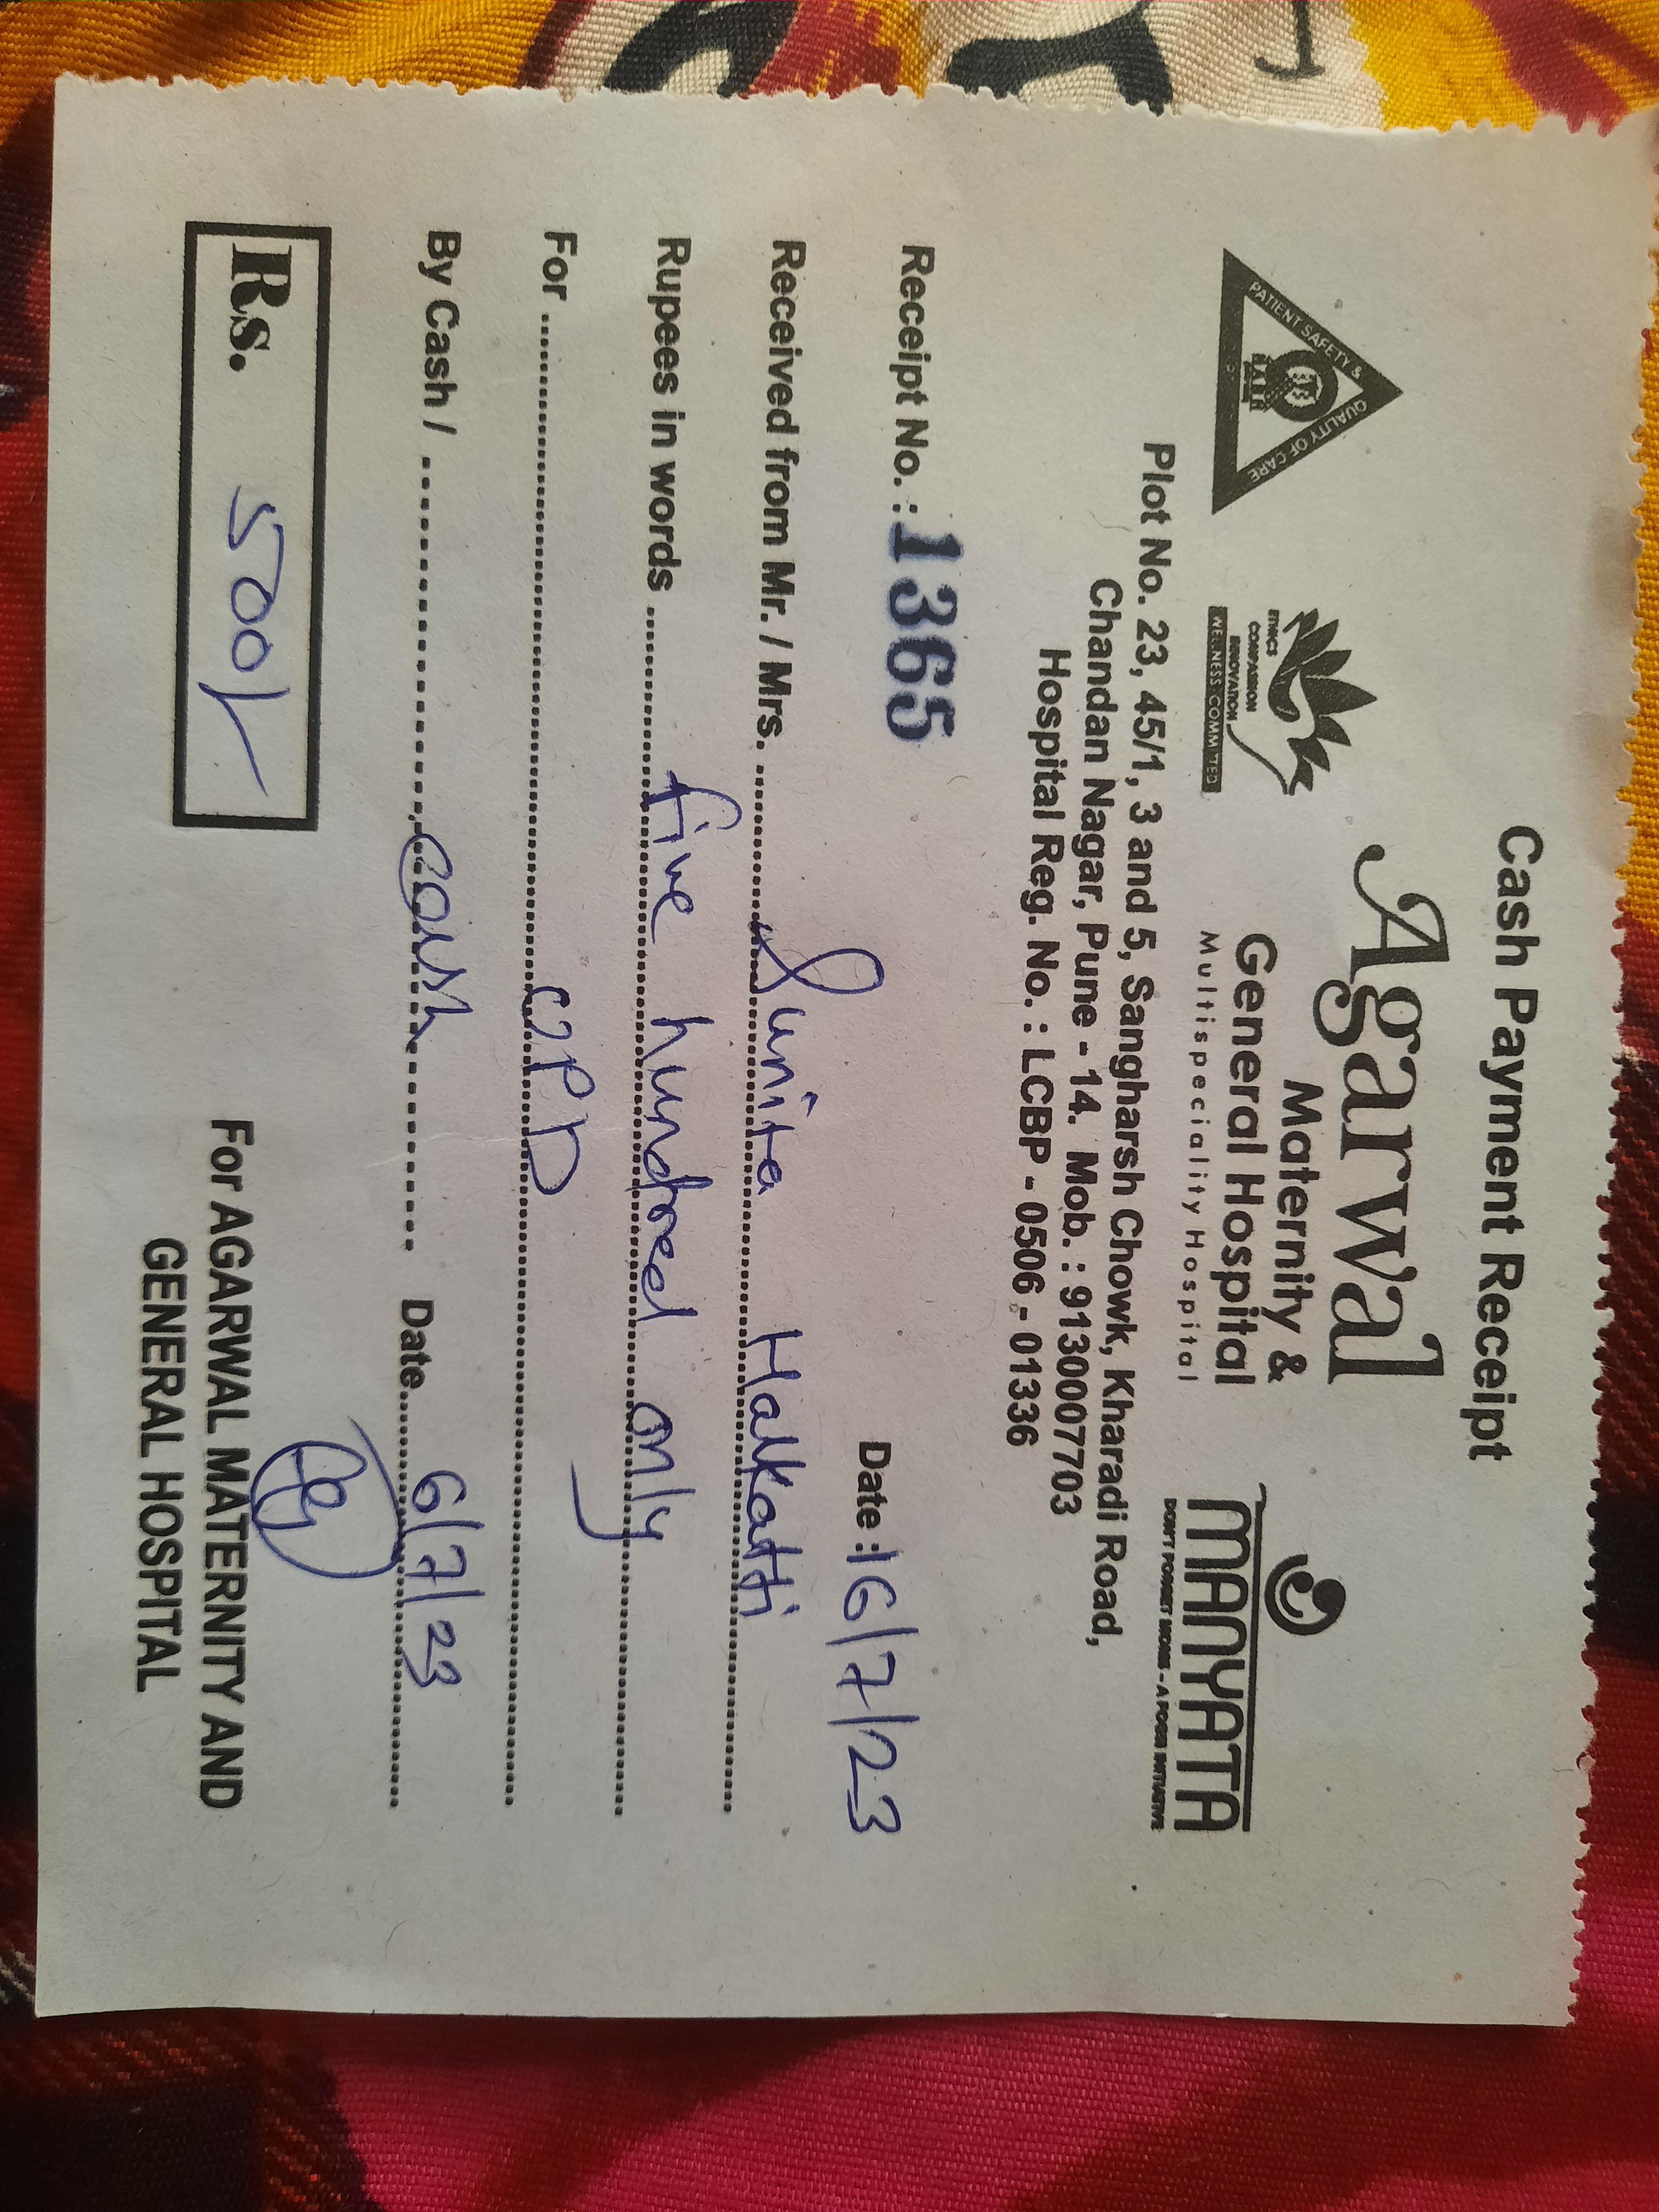 Cash Payment Receipt
PATIENT SAFETY & QUALITY OF CARE
ETHICS
COMPASSION
INNOVATION
WELLNESS: COMMITTED
Agarwal
Maternity &
General Hospital
Multispeciality Hospital
MANYATA
Plot No. 23, 45/1, 3 and 5, Sangharsh Chowk, Kharadi Road,
Chandan Nagar, Pune - 14. Mob. : 9130007703
Hospital Reg. No. : LCBP - 0506 - 01336
Receipt No. : 1365 Date : 16/7/23
Received from Mr. / Mrs. Sunita Halkatti
Rupees in words five hundred only
For OPD
By Cash / cash Date 6/7/23
Rs. 500/-
For AGARWAL MATERNITY AND
GENERAL HOSPITAL